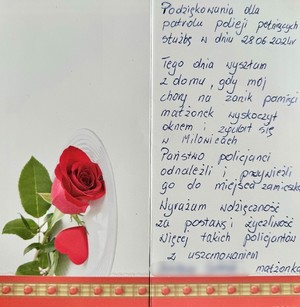 Podziękowania dla
patrolu policji pełniących
służbę w dniu 28.06.2024r
Tego dnia wyszłam
z domu, gdy mój
chory na zanik pamięci
małżonek wyskoczył
oknem i zgubił się
w Milowicach
Państwo policjanci
odnaleźli i przywieźli
go do miejsca zamieszka
Wyrażam wdzięczność
za postawę i życzliwość
Więcej takich policjantów
z uszanowaniem
małżonka